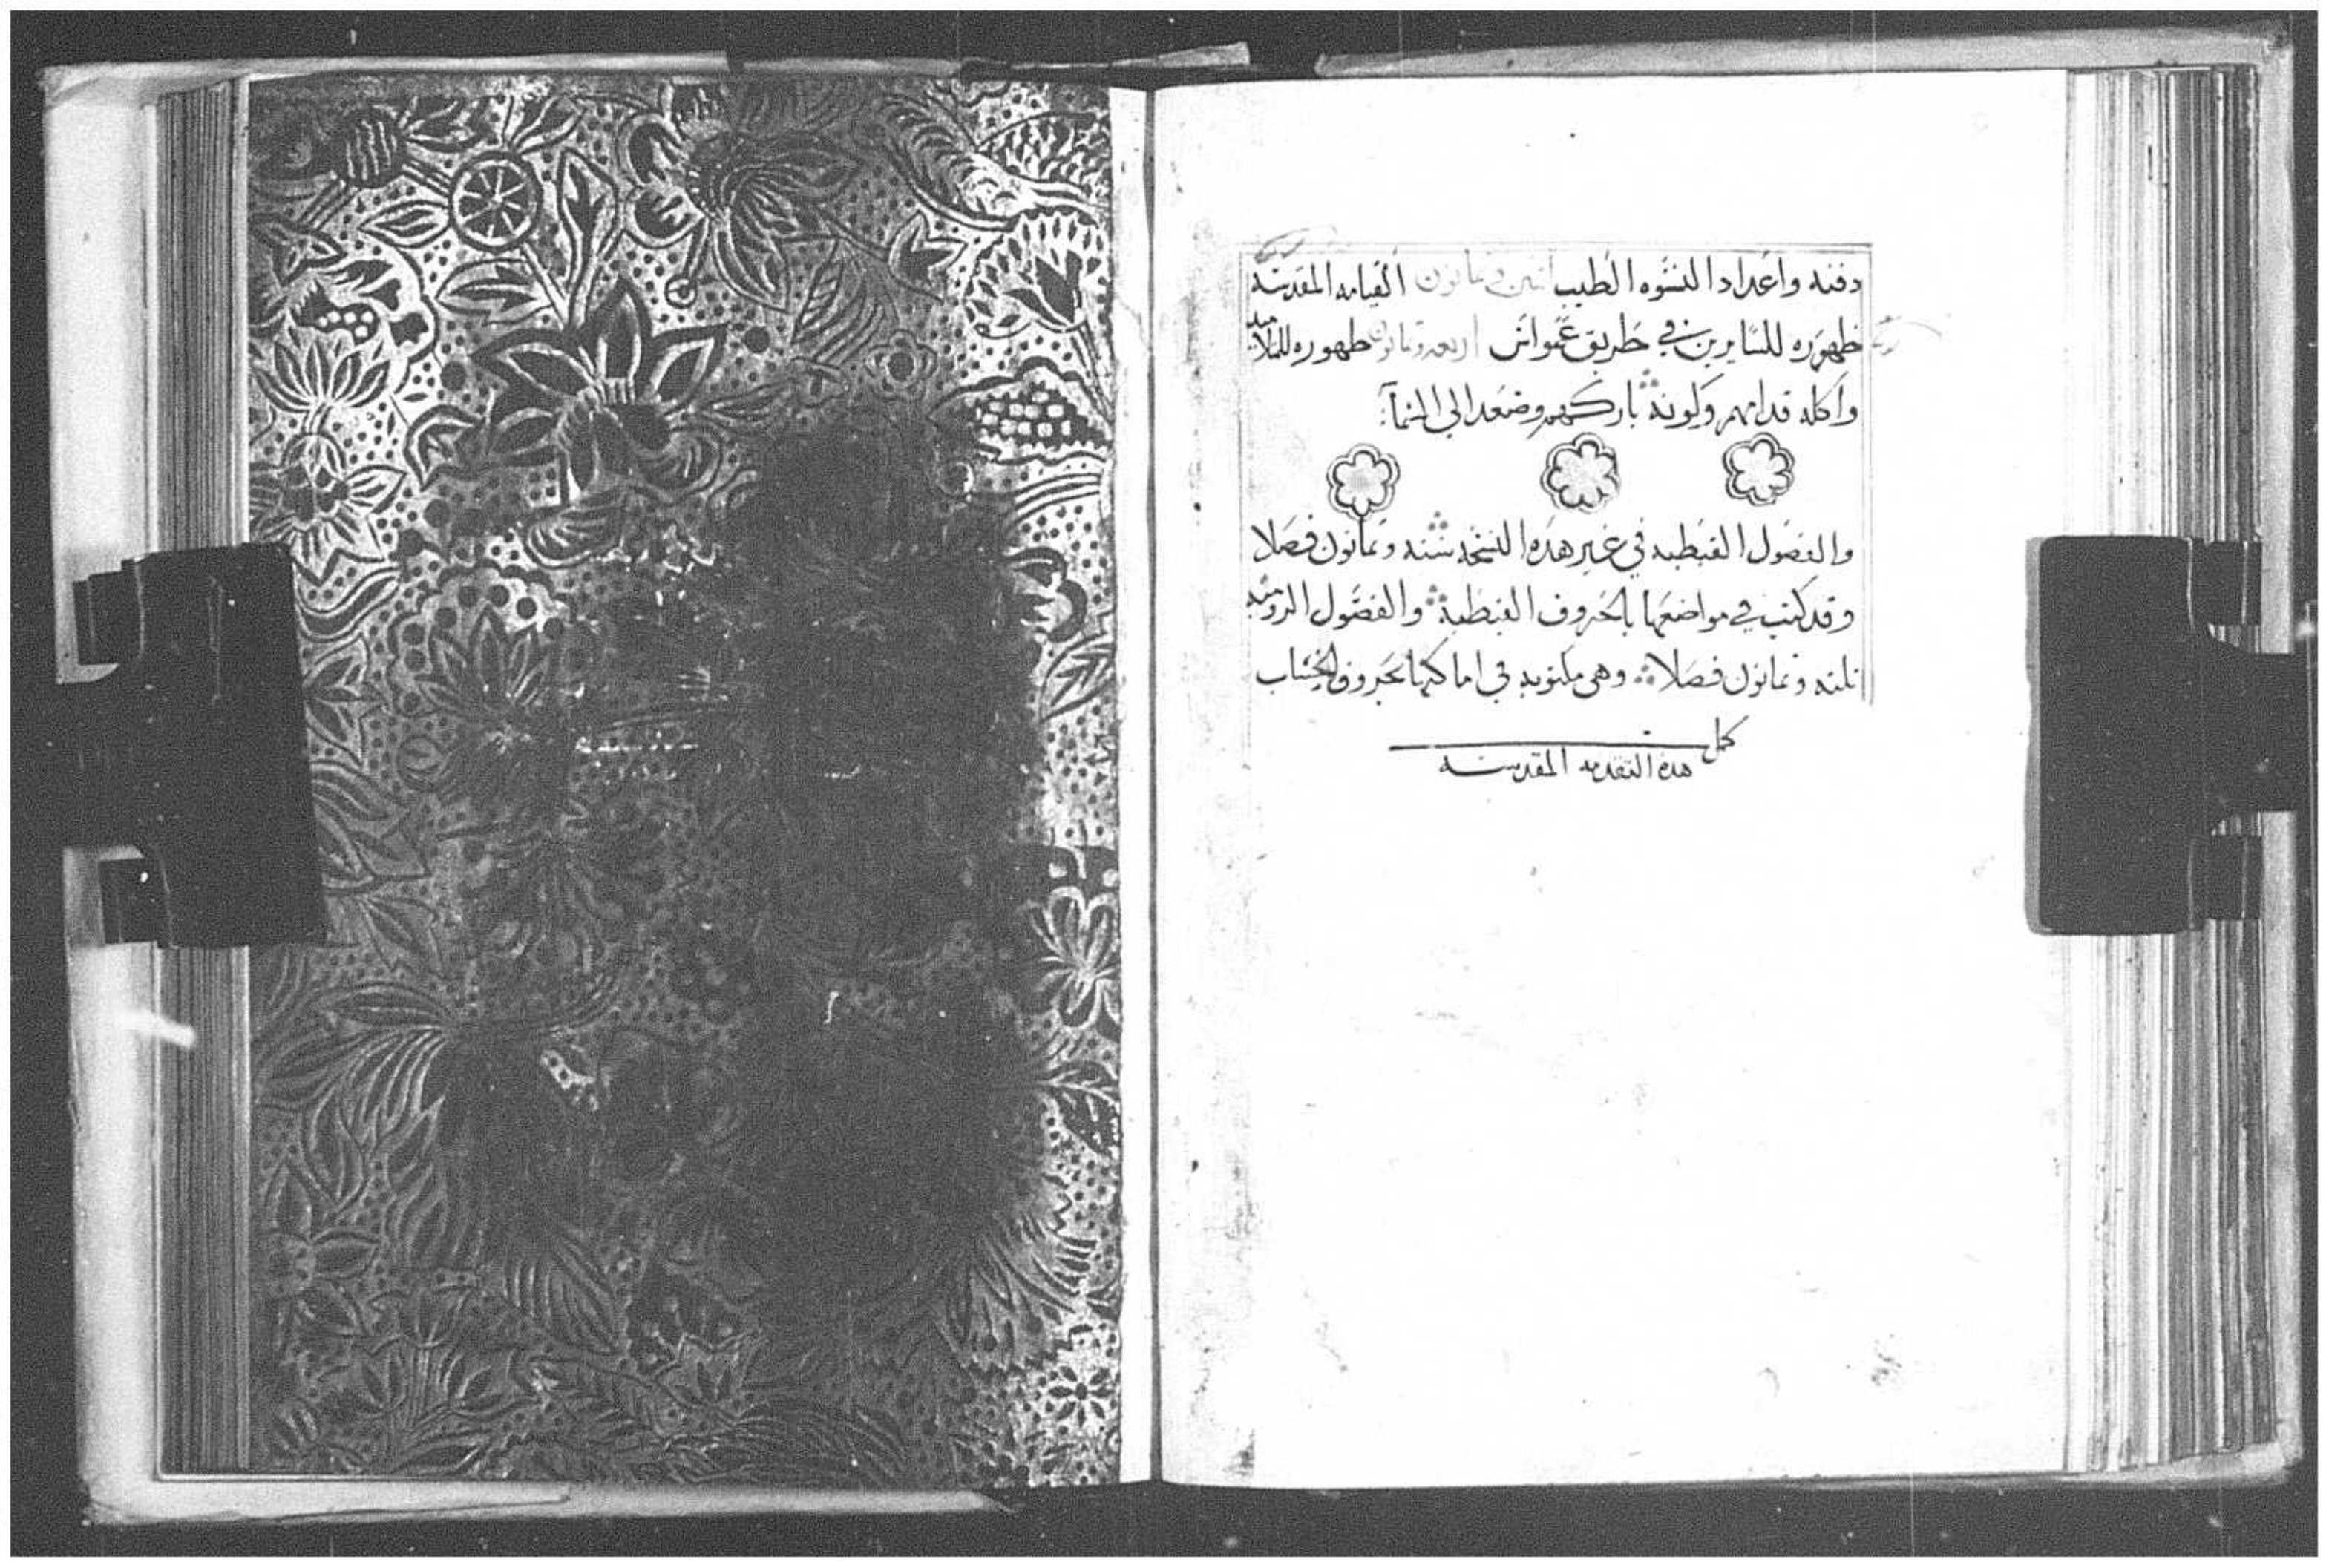 دفنه واعداد النسوه الطيب اتنين وثمانون القيامه المقدسه
ظهوره للسايرين في طريق عمواس اربعه وثمانون ظهوره للتلاميد
واكله قدامهم وكونه باركهم وصعد الى السمآ
والفصول القبطيه في غير هده النسخه سته وثمانون فصلا
وقد كتب في مواضعها بالحروف القبطية والفصول الروميه
تلته وثمانون فصلا وهي مكتوبه في اماكنها بحروف الحساب
كمل
هده التقدمه المقدسه